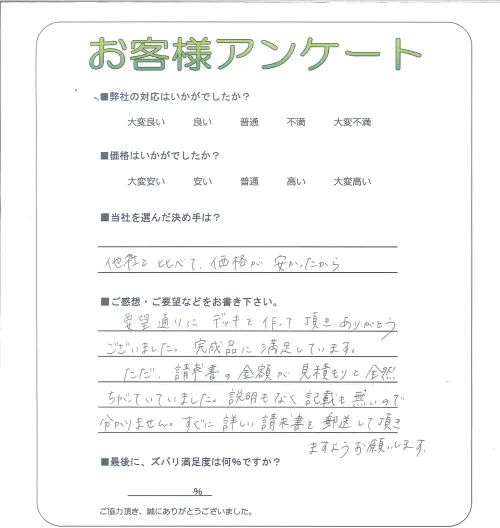 お客様アンケート
■弊社の対応はいかがでしたか？
大変良い 良い 普通 不満 大変不満
■価格はいかがでしたか？
大変安い 安い 普通 高い 大変高い
■当社を選んだ決め手は？
他社と比べて、価格が安かったから
■ご感想・ご要望などをお書き下さい。
要望通りにデッキを作って頂きありがとう
ございました。完成品に満足しています。
ただ、請求書の金額が見積もりと全然
ちがていていました。説明もなく記載も無いので
分かりません。すぐに詳しい請求書を郵送して頂き
ますようお願いします。
■最後に、ズバリ満足度は何%ですか？
%
ご協力頂き、誠にありがとうございました。